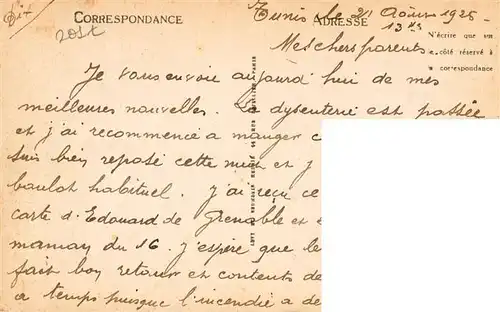 CORRESPONDANCE
ADRESSE
Tunis le 21 Août 1925
13 hs
N'écrire que sur
le côté réservé à
la correspondance
Mes chers parents
Je vous envoie aujourd'hui de mes
meilleures nouvelles. La dysenterie est passée
et j'ai recommencé a manger
suis bien reposé cette nuit et j
boulot habituel. J'ai reçu ce
carte d'Edouard de Grenoble et
maman du 16. J'espère que le
fait bon retour et contents de
a temps puisque l'incendie a de